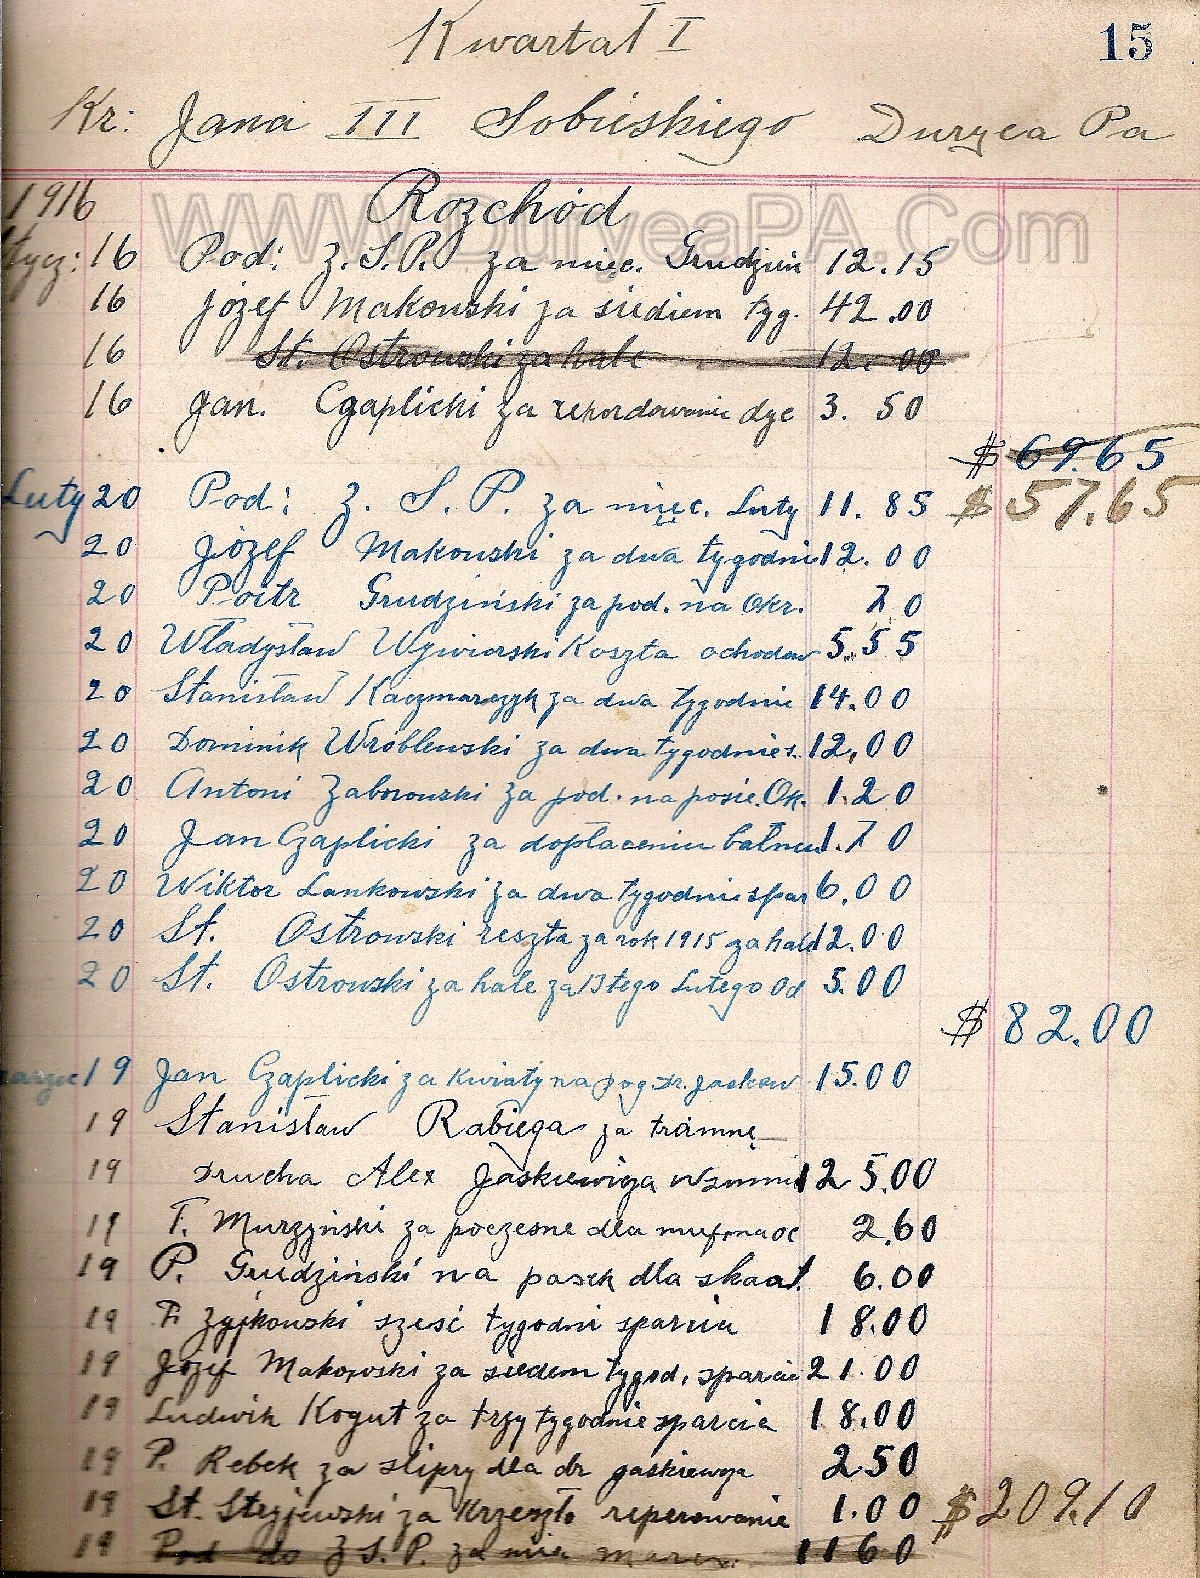 15
Kwartał I
Kr: Jana III Sobieskiego Duryea Pa
WWW.DuryeaPA.Com
1916 Rozchód
Stycz: 16 Pod: Z.S.P. za mięc. Grudzień 12.15
16 Józef Makowski za siediem tyg. 42.00
16 St. Ostrowski za hale 12.00
16 Jan. Czaplicki za rekordowanie dye 3.50
$ 69.65
Luty 20 Pod: Z. S. P. za mięc. Luty 11.85 $ 57.65
20 Józef Makowski za dwa tygodni 12.00
20 Poitr Grudziński za pod. na Okr. 70
20 Władysław Wywiorski Koszta ochodow 5.55
20 Stanisław Kaczmarczyk za dwa tygodnie 14.00
20 Dominik Wroblewski za dwa tygodnie s. 12,00
20 Antoni Zaborowski za pod. na posie. Ok. 1.20
20 Jan Czaplicki za dopłaceniu 1.70
20 Wiktor Lankowski za dwa tygodnie spar 6.00
20 St. Ostrowski reszta za rok 1915 za hale 12.00
20 St. Ostrowski za hale za 13tego Lutego Od 5.00
$ 82.00
19 Jan Czaplicki za Kwiaty na pog. Dr. Jaskew 15.00
19 Stanisław Rabiega za tramnę
19 Drucha Alex Jaskiewicza 125.00
19 T. Murzyński za poczesne dla 2.60
19 P. Grudziński na pasek dla skaut. 6.00
19 F. Zyjkowski sześć tygodni sparcia 18.00
19 Józef Makowski za siedem tygod, sparcie 21.00
19 Ludwik Kogut za trzy tygodnie sparcia 18.00
19 P. Rebek za slipry dla dr 2.50
19 St. Styjewski za Krzesło reperowanie 1.00 $ 209.10
19 Pod do Z S.P. za mie marz. 11 60